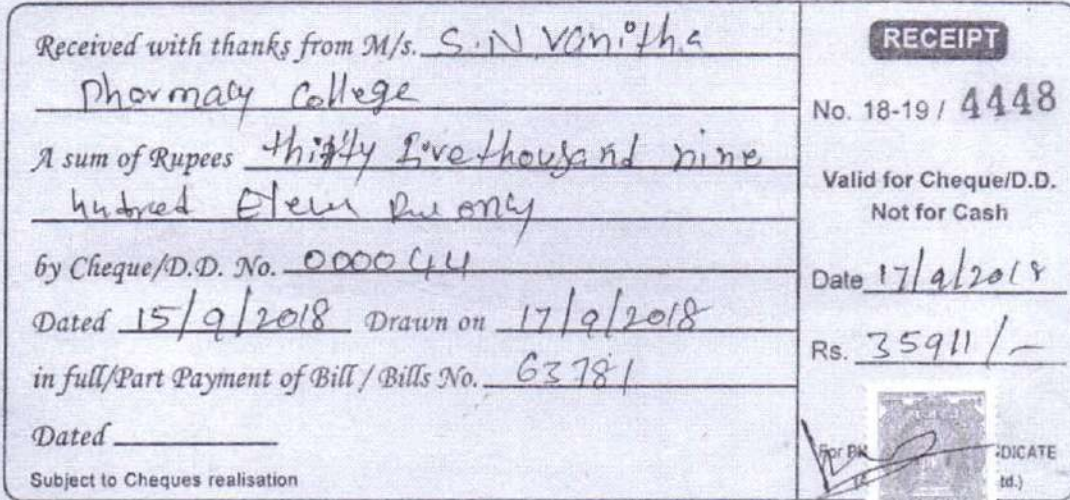 Received with thanks from M/s. S.N Vanitha
Pharmacy College
A sum of Rupees thirty five thousand nine
hundred Eleven only
by Cheque/D.D. No. 000044
Dated 15/9/2018 Drawn on 17/9/2018
in full/Part Payment of Bill / Bills No. 63781
Dated
Subject to Cheques realisation
RECEIPT
No. 18-19 / 4448
Valid for Cheque/D.D.
Not for Cash
Date 17/9/2018
Rs. 35911/-
For
DICATE
td.)